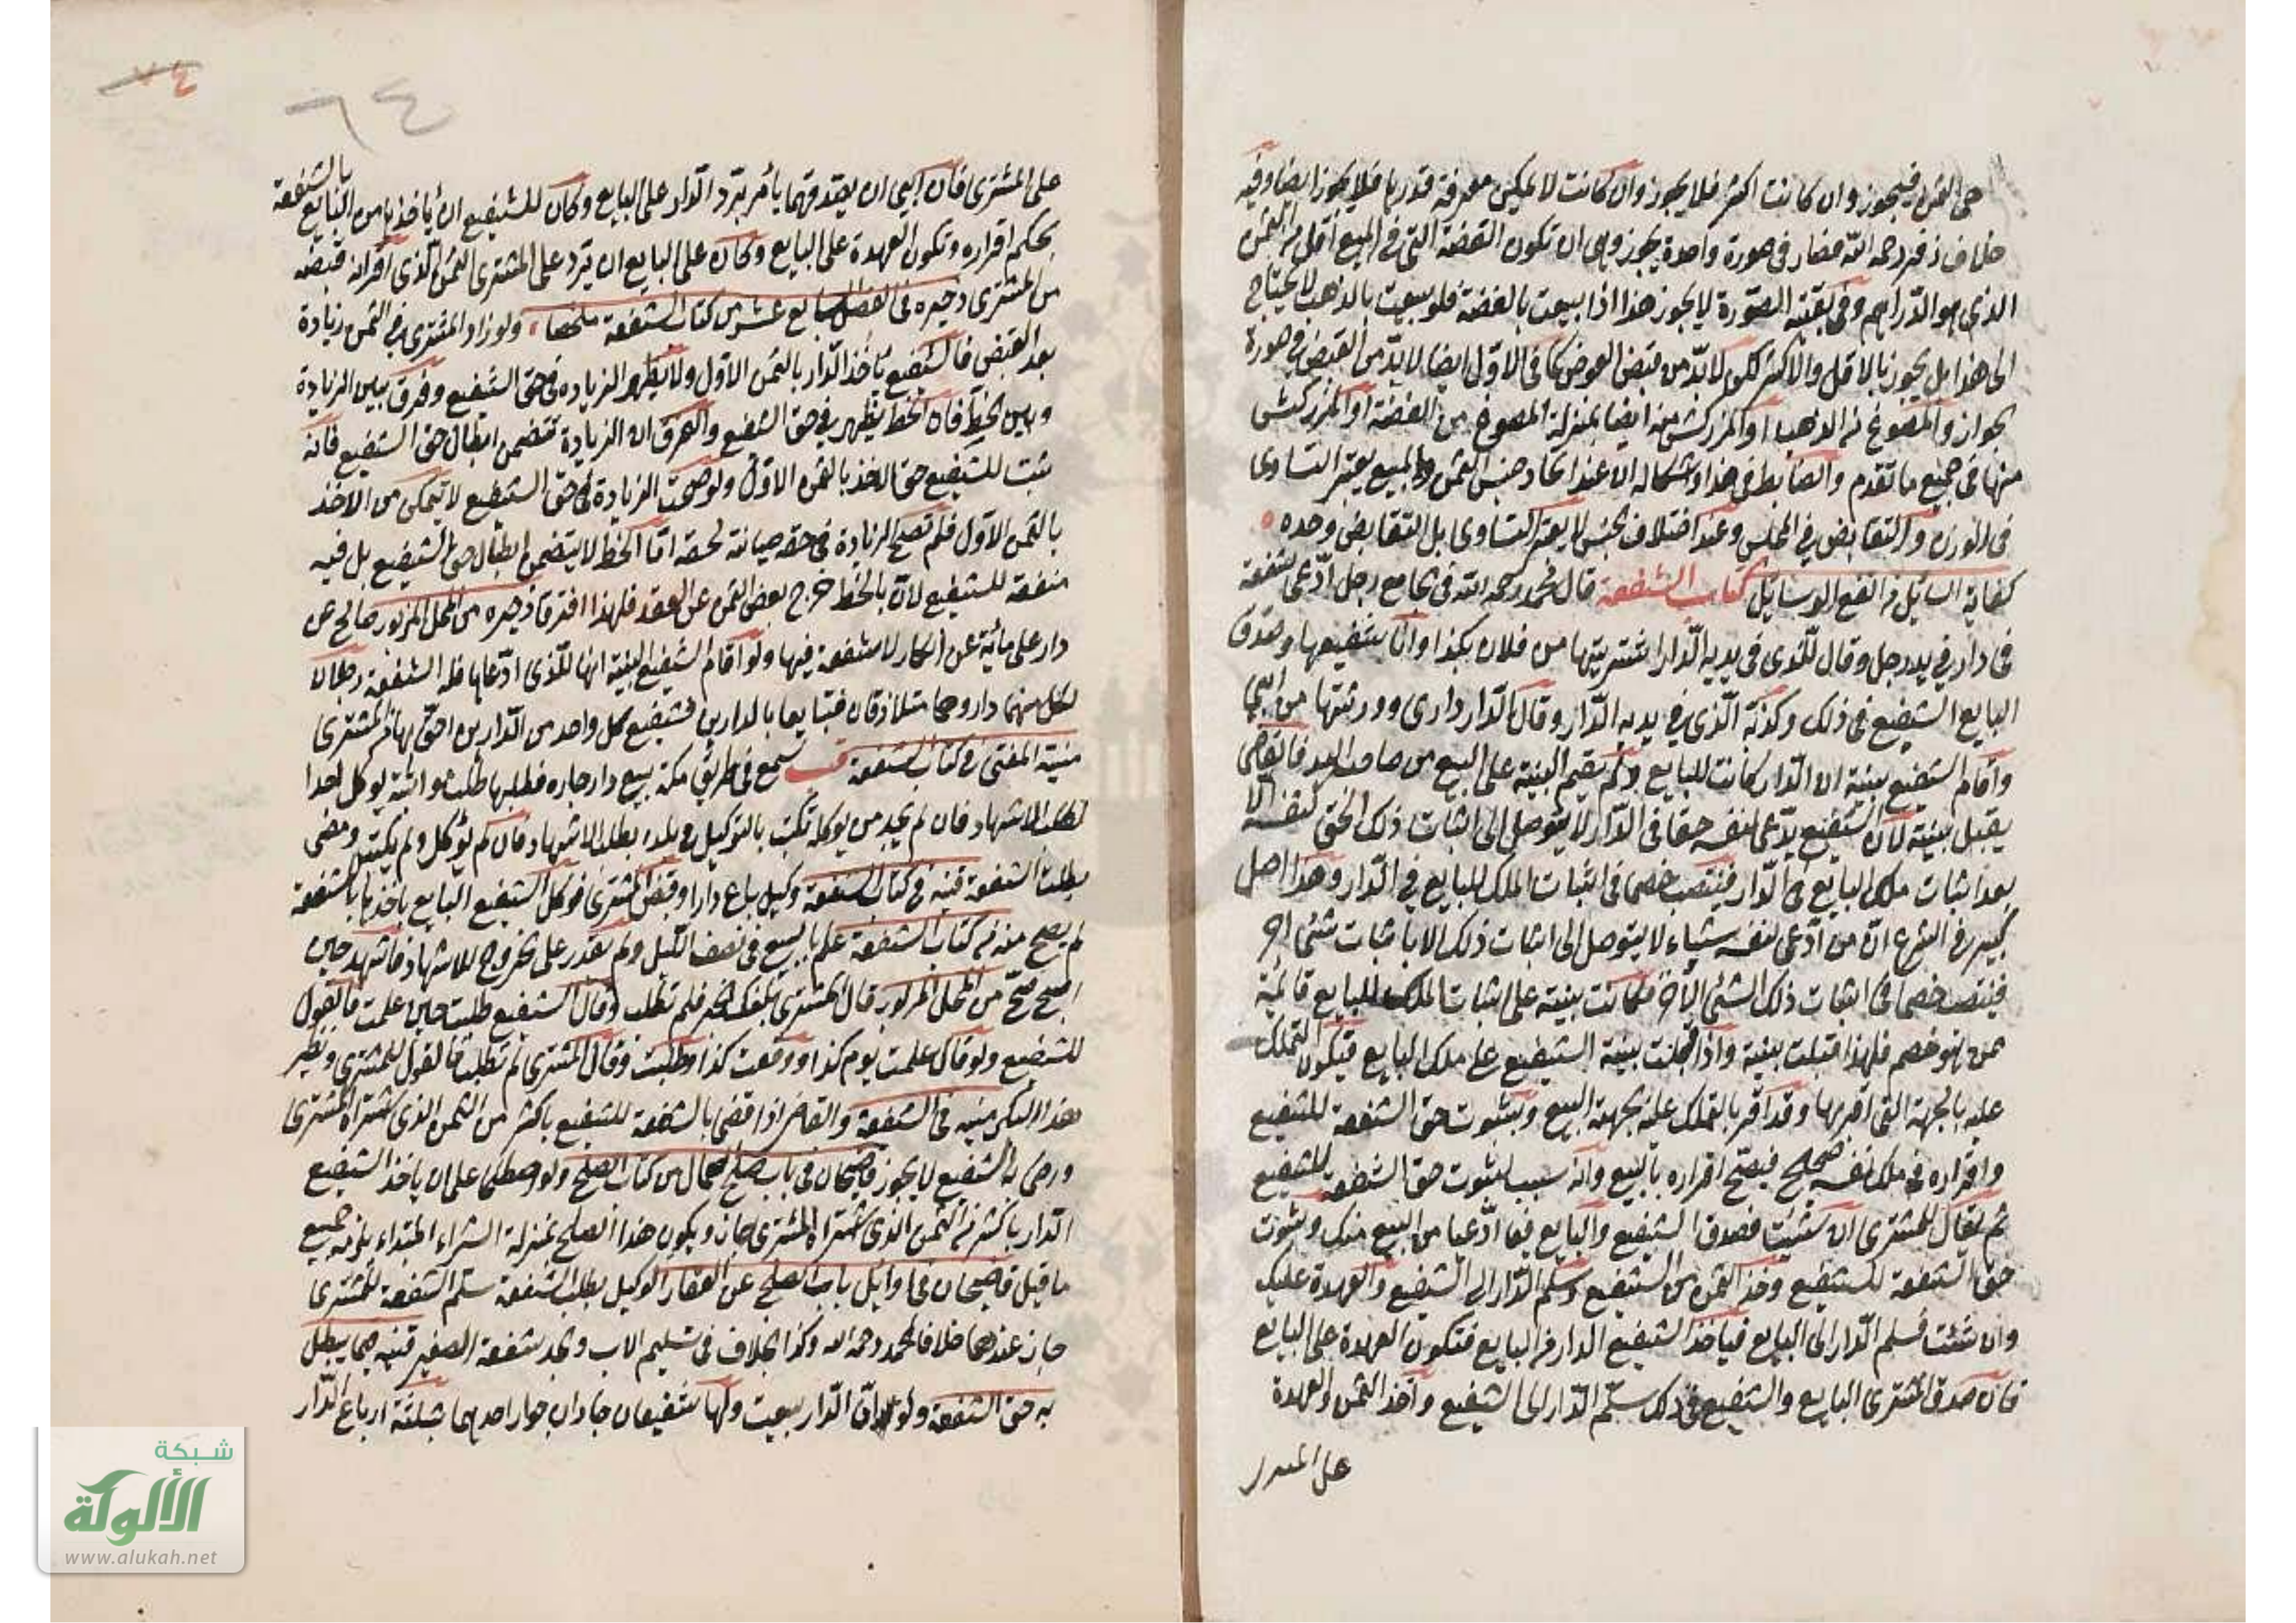 حى الثمن فيجوز وان كانت اكثر فلا يجوز وان كانت لا يمكن معرفة قدرها فلا يجوز ايضا وفيه
خلاف زفر رحمه الله فصار فى صورة واحدة يجوز وهى ان تكون الفضة التى فى المبيع اقل من الثمن
الذى هو الدراهم وفى بقية الصورة لا يجوز هذا اذا بيعت بالفضة فلو بيعت بالذهب لا يحتاج
الى هذا بل يجوز بالاقل والاكثر لكن لا بد من قبض العوض كما فى الاول ايضا لا بد من القبض فى صورة
الجواز والمصوغ من الذهب او المزركش منه ايضا بمنزلة المصوغ من الفضة او المزركش
منها فى جميع ما تقدم والضابط فى هذا واشكاله ان عند اتحاد جنس الثمن والمبيع يعتبر التساوى
فى الوزن والتقابض فى المجلس وعند اختلاف الجنس لا يعتبر التساوى بل التقابض وحده
كفاية السائل من انفع الوسائل كتاب الشفعة قال محمد رحمه الله فى الجامع رجل ادعى شفعة
فى دار فى يد رجل وقال للذى فى يديه الدار اشتريتها من فلان بكذا وانا شفيعها وصدق
البايع الشفيع فى ذلك وكذبه الذى فى يديه الدار وقال الدار دارى وورثتها من ابى
واقام الشفيع بينة ان الدار كانت للبايع ولم يقيم البينة على البيع من صاحب اليد فالقاضى
يقبل بينته لان الشفيع يدعى لنفسه حقا فى الدار لا يتوصل الى اثبات ذلك الحق لنفسه الا
بعد اثبات ملك البايع فى الدار فينتصب خصما فى اثبات الملك للبايع فى الدار وهذا اصل
كبير فى الشرع ان من ادعى لنفسه شياء لا يتوصل الى اثبات ذلك الا باثبات شئ اخر
فينتصب خصما فى اثبات ذلك الشئ الآخر فكانت بينته على اثبات الملك للبايع قائمة
ممن هو خصم فلهذا قبلت بينته واذا قبلت بينة الشفيع على ملك البايع فيكون التملك
عليه بالجهة التى اقر بها وقد اقر بالتملك عليه بجهة البيع وبثبوت حق الشفعة للشفيع
واقراره فى ملك نفسه صحيح فيصح اقراره بالبيع وانه سبب لثبوت حق الشفعة للشفيع
ثم يقال للمشترى ان شئت فصدق الشفيع والبايع فيما ادعيا من البيع منك وثبوت
حق الشفعة للشفيع وخذ الثمن من الشفيع وسلم الدار الى الشفيع والعهدة عليك
وان شئت فسلم الدار الى البايع فيأخذ الشفيع الدار من البايع فتكون العهدة على البايع
فان صدق المشترى البايع والشفيع فى ذلك سلم الدار الى الشفيع واخذ الثمن والعهدة
على المشترى
٦٤
٧٤
على المشترى فان ابى ان يصدقهما يأمر برد الدار على البايع وكان للشفيع ان يأخذها من البايع بالشفعة
بحكم اقراره وتكون العهدة على البايع وكان على البايع ان يرد على المشترى الثمن الذى اقر انه قبضه
من المشترى ذخيره فى الفصل السابع عشر من كتاب الشفعة ملخصا ولو زاد المشترى فى الثمن زيادة
بعد القبض فالشفيع يأخذ الدار بالثمن الاول ولا يظهر الزياده فى حق الشفيع وفرق بين الزيادة
وبين الحط فان الحط يظهر فى حق الشفيع والفرق ان الزيادة تتضمن ابطال حق الشفيع فانه
ثبت للشفيع حق الاخذ بالثمن الاول ولو صحت الزيادة فى حق الشفيع لا يتمكن من الاخذ
بالثمن الاول فلم تصح الزيادة فى حقه صيانة لحقه اما الحط لا يتضمن ابطال حق الشفيع بل فيه
منفعة للشفيع لان بالحط خرج بعض الثمن عن العقد فلهذا افترقا ذخيره من المحل المزبور صالح عن
دار على مأية عن انكار لا شفعة فيها ولو اقام الشفيع البينة انها للذى ادعاها فله الشفعة رجلان
لكل منهما دار وهما متلازقان فتبايعا بالدارين فشفيع كل واحد من الدارين احق بها من المشترى
منية المفتى فى كتاب الشفعة سمع فى طريق مكة بيع دار جاره فطلبها طلب مواثبة يوكل احدا
لطلب الاشهاد فان لم يجد من يوكله تكتب بالتوكيل فى بلده بطلب الاشهاد فان لم يؤكل ولم يكتب ومضى
بطلت الشفعة قنيه فى كتاب الشفعة وكيل باع دارا وقبض المشترى فوكل الشفيع البايع باخذها بالشفعة
لم يصح منه من كتاب الشفعة علم بالبيع فى نصف الليل ولم يقدر على الخروج للاشهاد فاشهد حين
اصبح صح من المحل المزبور قال المشترى بلغك الخبر فلم تطلب وقال الشفيع طلبت حين علمت فالقول
للشفيع ولو قال علمت يوم كذا ووقعت كذا وطلبت وقال المشترى لم تطلب فالقول للمشترى ونظير
هذا البكر منيه فى الشفعة والقاضى اذا قضى بالشفعة للشفيع باكثر من الثمن الذى اشتراه المشترى
ورضى به الشفيع لا يجوز قاضيخان فى باب صلح العمال من كتاب الصلح ولو اصطلحا على ان يأخذ الشفيع
الدار باكثر من الثمن الذى اشتراه المشترى جاز ويكون هذا الصلح بمنزلة الشراء المبتداء يلزمه جميع
ما قبل قاضيخان فى اوائل باب الصلح عن العقار الوكيل بطلب الشفعة سلم الشفعة للمشترى
جاز عندهما خلافا لمحمد رحمه الله وكذا الخلاف فى تسليم الاب والجد شفعة الصغير قنيه فيما يبطل
به حق الشفعة ولو ان الدار بيعت ولها شفيعان جاران جوار احدهما بثلثة ارباع الدار
شبكة
الألوكة
www.alukah.net